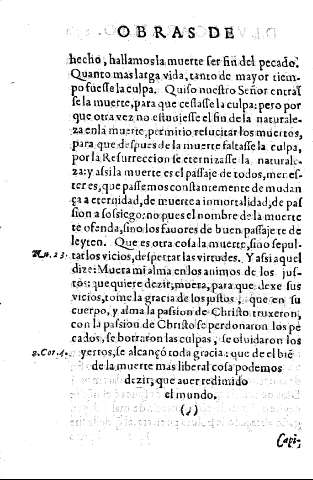 OBRAS DE
hecho, hallamos la muerte ser fin del pecado.
Quanto mas larga vida, tanto de mayor tiem-
po fuesse la culpa. Quiso nuestro Señor entras
se la muerte, para que cessasse la culpa; pero por
que otra vez no estuviesse el fin de la natural e
za en la muerte, permitio resucitar los muertos,
para que despues de la muerte faltasse la culpa,
por la Resurreccion se eternizasse la natural e-
za: y assi la muerte es el passaje de todos, menes-
ter es, que passemos constantemente de mudan
ça a eternidad, de muerte a inmortalidad, de pas
sion a sosiego: no pues el nombre de la muerte
te ofenda, sino los favores de buen passaje te de
leyten. Que es otra cosa la muerte, sino sepul-
Nu. 23. tar los vicios, despertar las virtudes. Y assi aquel
dize: Muera mi alma en los animos de los jus-
tos: que quiere dezir, muera, para que dexe sus
vicios, tome la gracia de los justos, que en su
cuerpo, y alma la passion de Christo truxeron;
con la passion de Christo se perdonaron los pe
cados, se borraron las culpas, se olvidaron los
2. Cor. 4. yerros, se alcançó toda gracia: que de el bié
de la muerte mas liberal cosa podemos
dezir, que aver redimido
el mundo.
(,)
Capi-